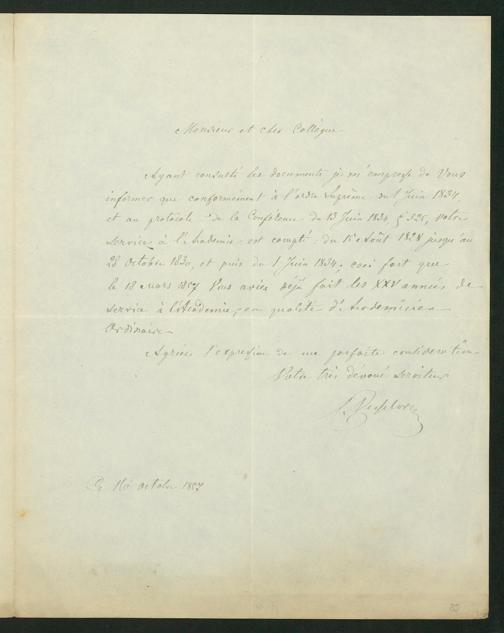 Monsieur et cher Collègue
Ayant consulté les documents je m'empresse de Vous
informer que conformément à l'ordre Suprême du 1 Juin 1834
et au protocole de la Conférence du 13 Juin 1834 § 325, Votre
service à l'Académie est compté: du 15 Août 1828 jusqu'au
28 Octobre 1830, et puis du 1 Juin 1834; ceci fait que
le 18 Mars 1857 Vous aviez déjà fait les XXV années de
service à l'Académie, en qualité d'Académicien
Ordinaire
Agréez l'expression de ma parfaite considération
Votre très dévoué serviteur
Ce 16 Octobre 1857